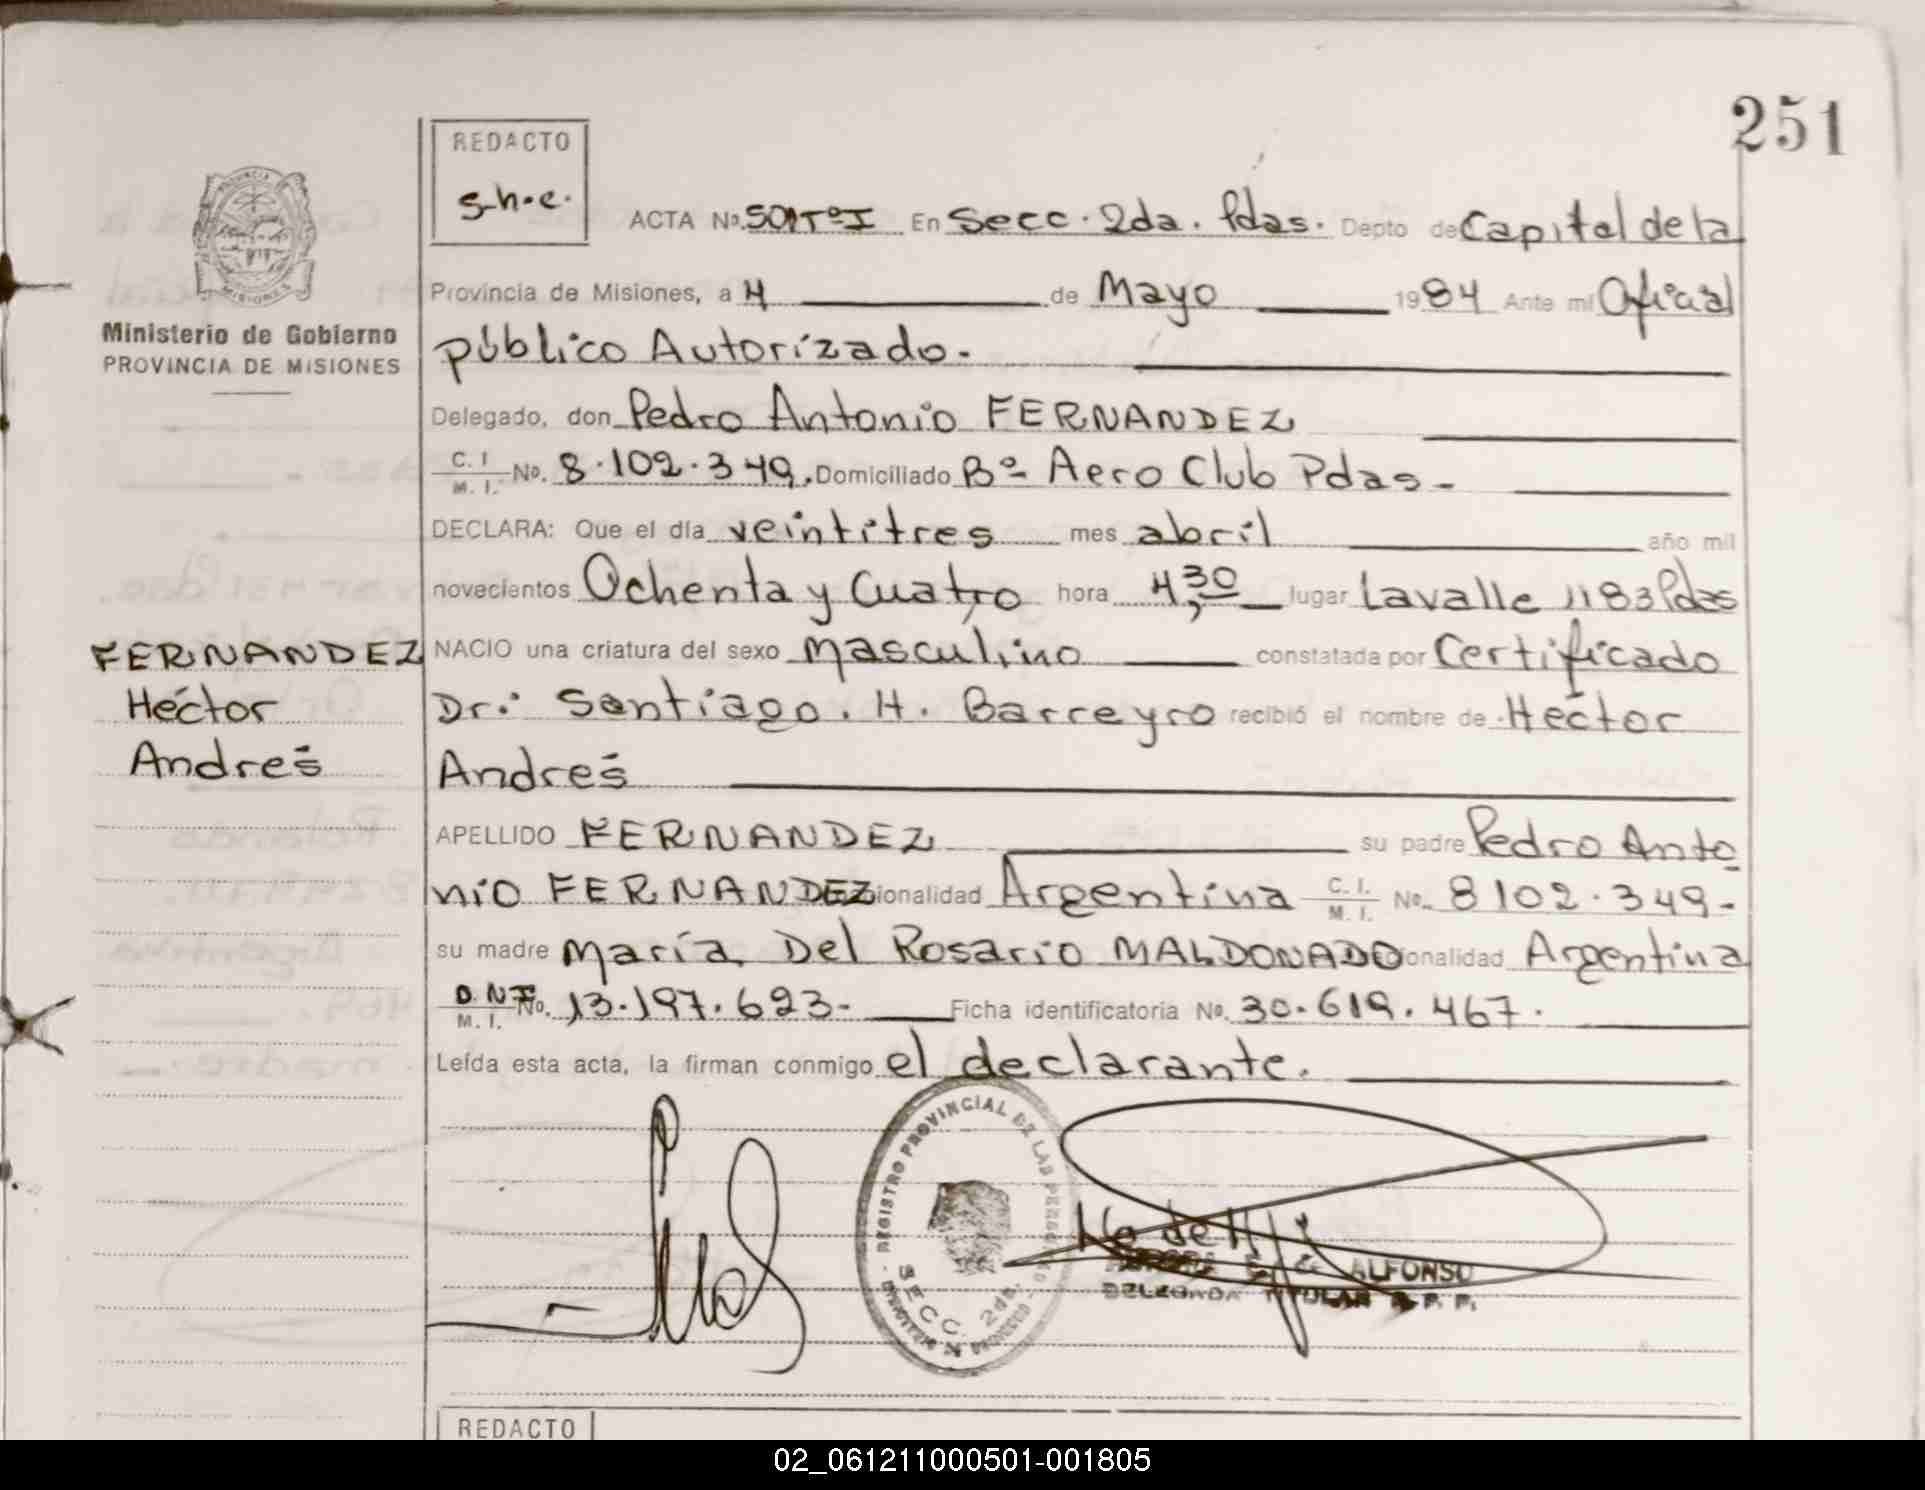 251
REDACTO
s.h.e.
ACTA Nº 501 Tº I En Secc. 2da. Pdas. Depto de Capital de la
Provincia de Misiones, a 4 de Mayo 1984 Ante mí Oficial
público Autorizado.
Delegado, don Pedro Antonio FERNANDEZ
C. I. M. I. Nº. 8.102.349. Domiciliado Bº Aero Club Pdas-
DECLARA: Que el día veintitres mes abril año mil
novecientos Ochenta y Cuatro hora 4,30 lugar Lavalle 1183 Pdas
NACIO una criatura del sexo masculino constatada por Certificado
Dr. Santiago. H. Barreyro recibió el nombre de Héctor
Andrés
APELLIDO FERNANDEZ su padre Pedro Anto
nio FERNANDEZ cionalidad Argentina C. I. M. I. No. 8102.349-
su madre María Del Rosario MALDONADO onalidad Argentina
D.N.I. M. I. No. 13.197.623- Ficha identificatoria Nº. 30.619.467.
Leída esta acta, la firman conmigo el declarante.
Ministerio de Gobierno
PROVINCIA DE MISIONES
FERNANDEZ
Héctor
Andrés
PROVINCIA DE
MISIONES
REGISTRO PROVINCIAL DE LAS PERSONAS
SECC. 2da.
ALFONSO
DELEGADA TITULAR R. P. P.
REDACTO
02_061211000501-001805